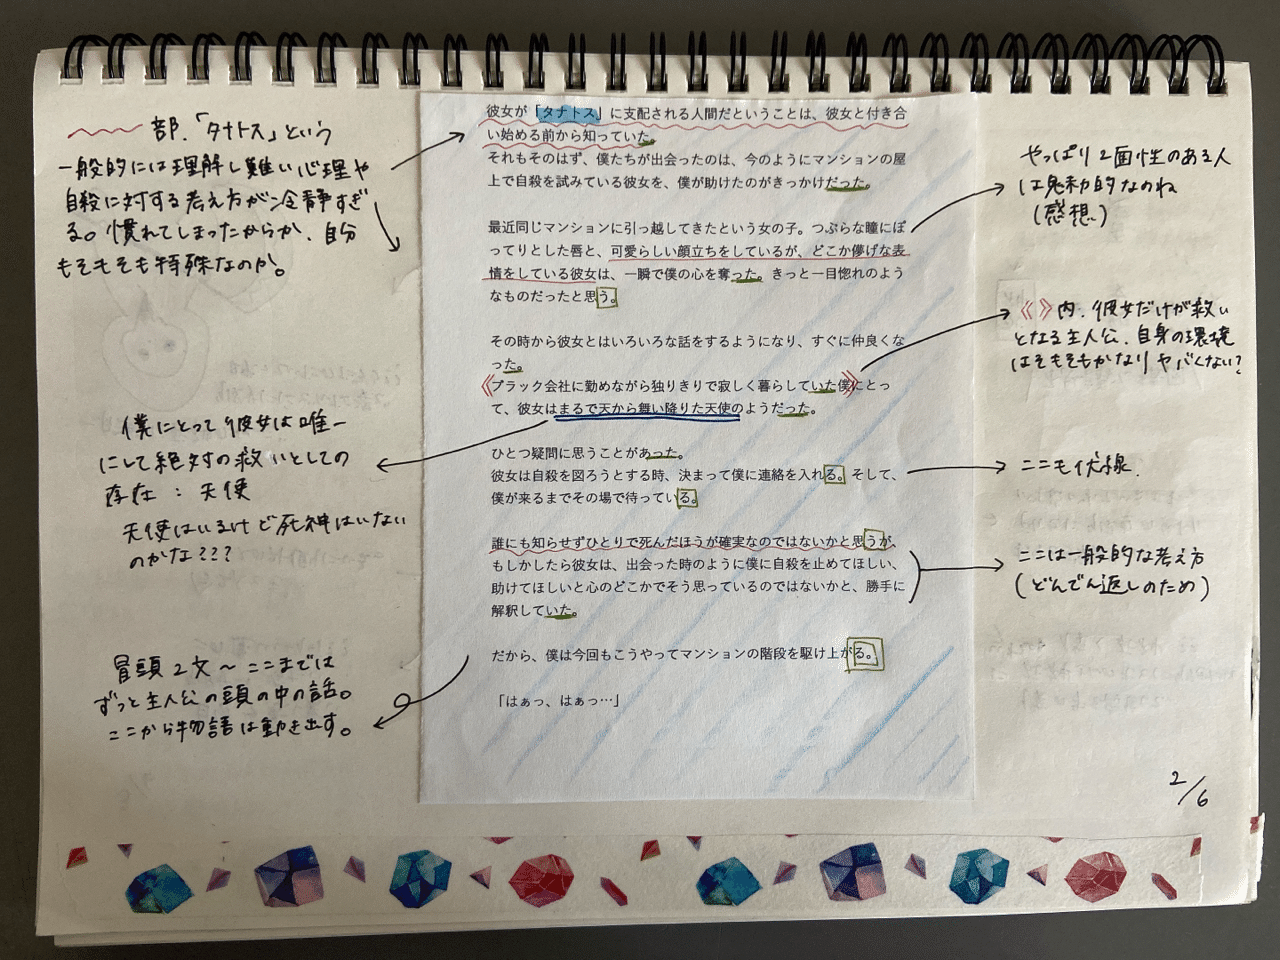 部.「タナトス」という
一般的には理解し難い心理や
自殺に対する考え方が冷静すぎ
る。慣れてしまったからか、自分
もそもそも特殊なのか。
僕にとって彼女は唯一
にして絶対の救いとしての
存在：天使
天使はいるけど死神はいない
のかな???
冒頭2文〜ここまでは
ずっと主人公の頭の中の話。
ここから物語は動き出す。
彼女が「タナトス」に支配される人間だということは、彼女と付き合
い始める前から知っていた。
それもそのはず、僕たちが出会ったのは、今のようにマンションの屋
上で自殺を試みている彼女を、僕が助けたのがきっかけだった。
最近同じマンションに引っ越してきたという女の子。つぶらな瞳にぽ
ってりとした唇と、可愛らしい顔立ちをしているが、どこか儚げな表
情をしている彼女は、一瞬で僕の心を奪った。きっと一目惚れのよう
なものだったと思う。
その時から彼女とはいろいろな話をするようになり、すぐに仲良くな
った。
《ブラック会社に勤めながら独りきりで寂しく暮らしていた僕》にとっ
て、彼女はまるで天から舞い降りた天使のようだった。
ひとつ疑問に思うことがあった。
彼女は自殺を図ろうとする時、決まって僕に連絡を入れる。そして、
僕が来るまでその場で待っている。
誰にも知らせずひとりで死んだほうが確実なのではないかと思うが、
もしかしたら彼女は、出会った時のように僕に自殺を止めてほしい、
助けてほしいと心のどこかでそう思っているのではないかと、勝手に
解釈していた。
だから、僕は今回もこうやってマンションの階段を駆け上がる。
「はぁっ、はぁっ…」
やっぱり2面性のある人
は魅力的なのね
(感想)
《》内.彼女だけが救い
となる主人公.自身の環境
はそもそもかなりヤバくない?
ここも伏線.
ここは一般的な考え方
(どんでん返しのため)
2/6